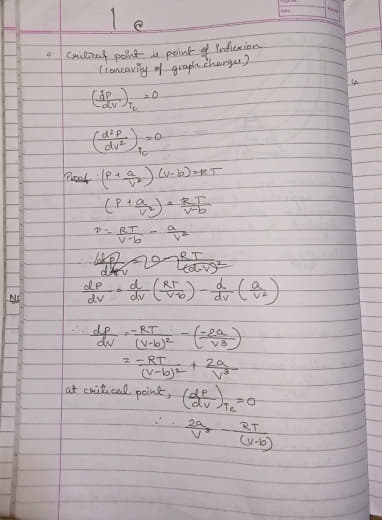 1 c
Critical point is point of Inflexion
(concavity of graph changes)
(dP/dV)_Tc = 0
(d²P/dV²)_Tc = 0
Proof : (P + a/V²) (V-b) = RT
(P + a/V²) = RT/V-b
P = RT/V-b - a/V²
dP/dV = d/dV (RT/V-b) - d/dV (a/V²)
∴ dP/dV = -RT/(V-b)² - (-2a/V³)
= -RT/(V-b)² + 2a/V³
at critical point, (dP/dV)_Tc = 0
∴ 2a/V³ = RT/(V-b)